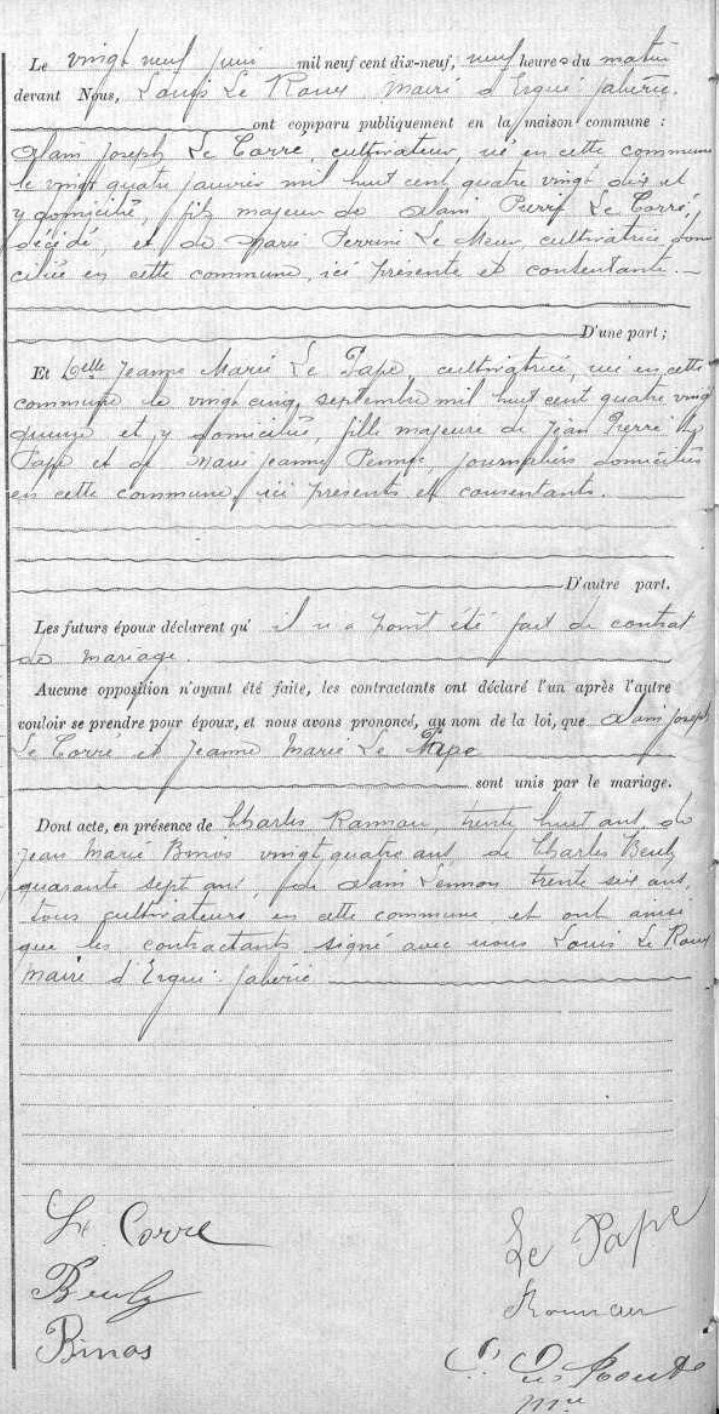 Le vingt neuf juin mil neuf cent dix-neuf, neuf heures du matin
devant Nous, Louis Le Roux Maire d'Ergué-Gabéric
ont comparu publiquement en la maison commune :
Alain Joseph Le Corre, cultivateur, né en cette commune
le vingt quatre janvier mil huit cent quatre vingt dix et
y domicilié, fils majeur de Alain Pierre Le Corré,
décédé, et de Marie Perrine Le Meur, cultivatrice domi
ciliée en cette commune, ici présente et consentante.
D'une part ;
Et Delle Jeanne Marie Le Pape, cultivatrice, née en cette
commune le vingt cinq septembre mil huit cent quatre vingt
quinze et y domiciliée, fille majeure de Jean Pierre Le
Pape et de Marie Jeanne, journaliers domiciliés
en cette commune, ici présents et consentants.
D'autre part.
Les futurs époux déclarent qu' il n'a point été fait de contrat
de mariage.
Aucune opposition n'ayant été faite, les contractants ont déclaré l'un après l'autre
vouloir se prendre pour époux, et nous avons prononcé, au nom de la loi, que Alain Joseph
Le Corré et Jeanne Marie Le Pape
sont unis par le mariage.
Dont acte, en présence de Charles Rannou, trente huit ans, de
Jean Marie Binos vingt quatre ans, de Charles Beulz
quarante sept ans, de Alain Lennon trente six ans,
tous cultivateurs en cette commune et ont ainsi
que les contractants signé avec nous Louis Le Roux
Maire d'Ergué-Gabéric
Le Corre
Le Pape
Beulz
Rannou
Binos